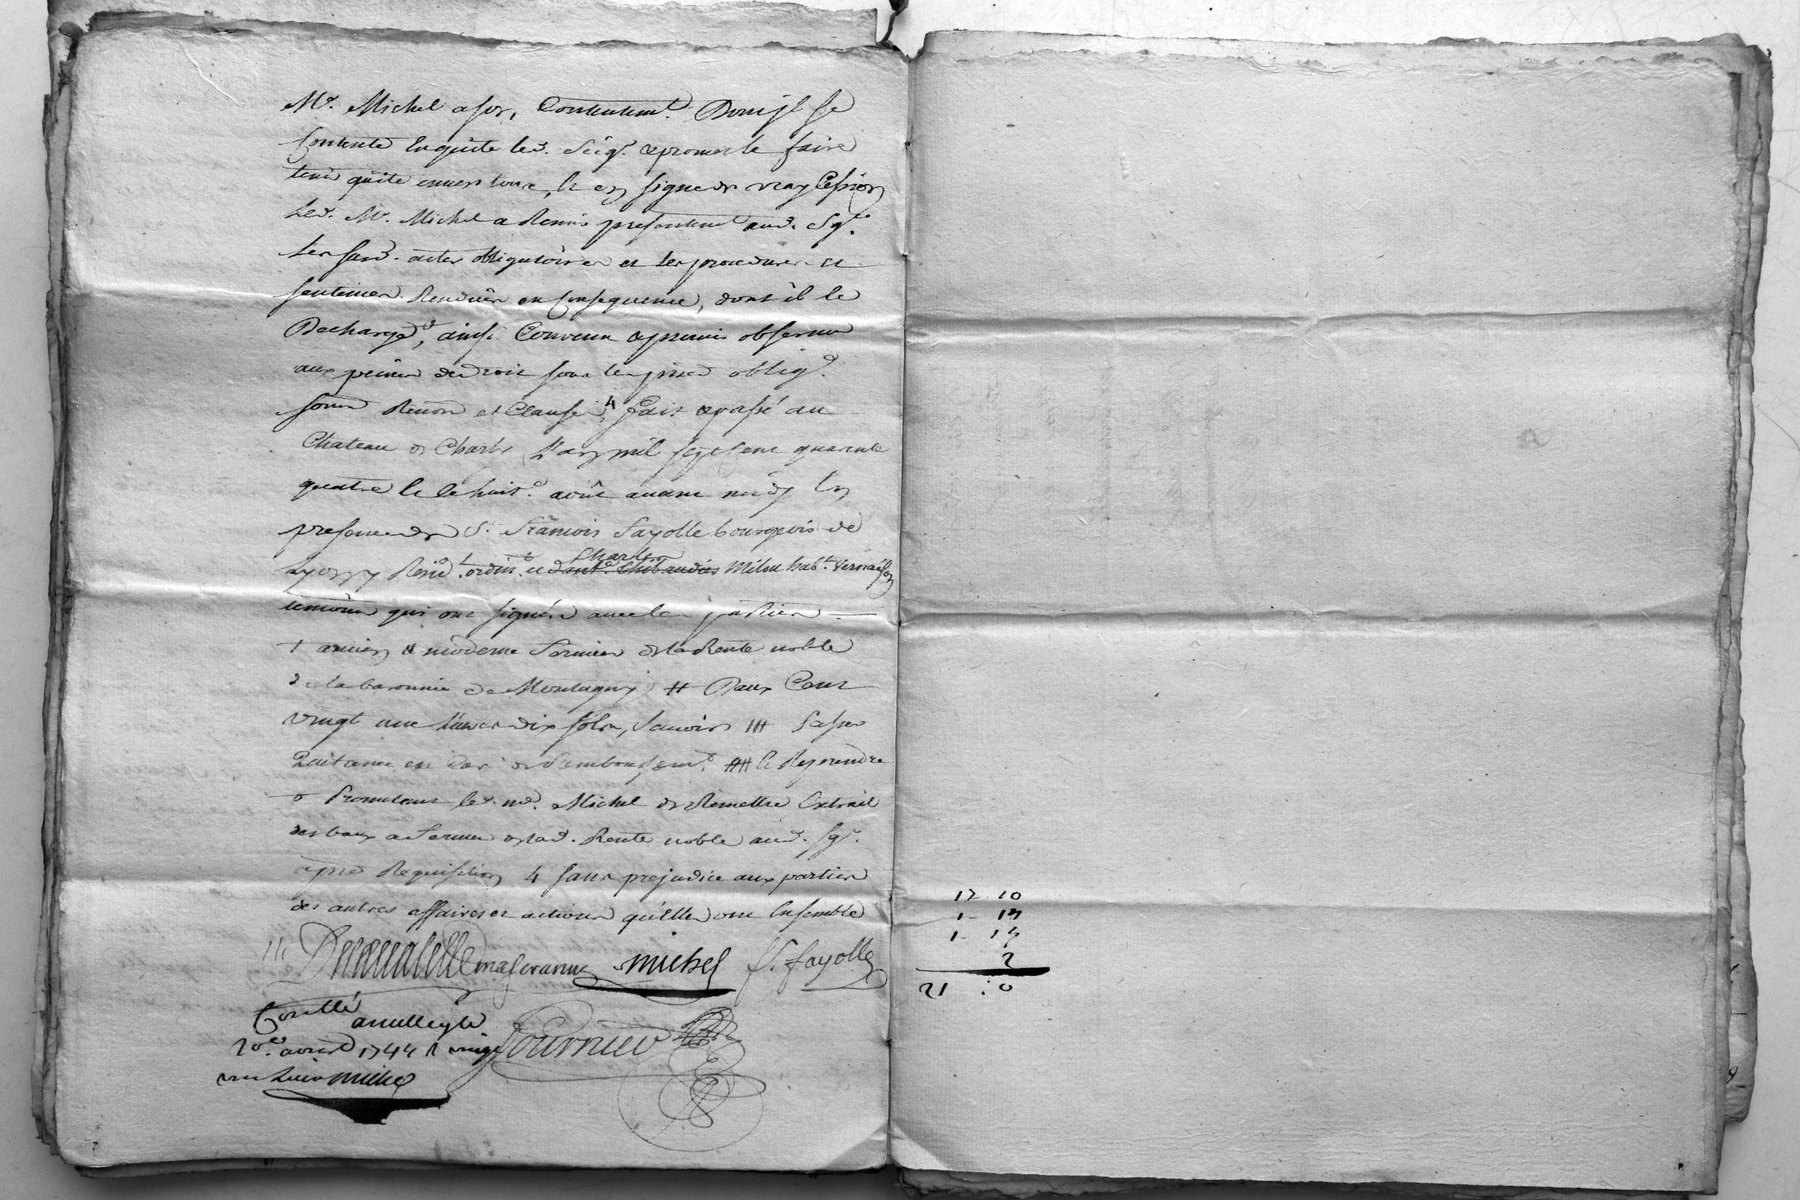 Mr. Michel a son Contentemt. Dont jl se
Contente en quitte led. Seigr. et promet le faire
tenir quite envers tous, et en signe de vray Cession
Led. Mr. Michel a Remis presentemt. aud. Sgr.
les susd. actes obligatoires et les procedures et
sentences Renduës en Consequence, dont il le
Decharge, ainsi Convenu et promis observer
aux peines de droit sous les prises oblig.
soum Renon et Clauses, 4 fait et passé au
Chateau de Charly L'an mil sept cent quarente
quatre le huit août avant midy En
presence de Sr. François Fayolle bourgeois de
Lyon y Resid. ordint. et Charles Milou habt. Vernaison
temoins qui ont signés avec les parties
+ ancien et moderne Fermier de la Rente noble
de la baronnie de Montagny # Deux Cent
vingt une livres dix sols, Sçavoir ### passer
Quitance en cas de Remboursemt. #### le Reprendre
o Promettant led. mr. Michel de Remettre Extrait
des baux a Ferme de lad. Rente noble aud. Sgr.
a pre Requisition 4 sans prejudice aux parties
des autres affaires et actions qu'elles ont Ensemble
michel f. fayolle
Fournier
Conttlé a
20e. aoust 1744 R vingt
michel
17 10
1 - 14
1 - 14
2
21 : 0